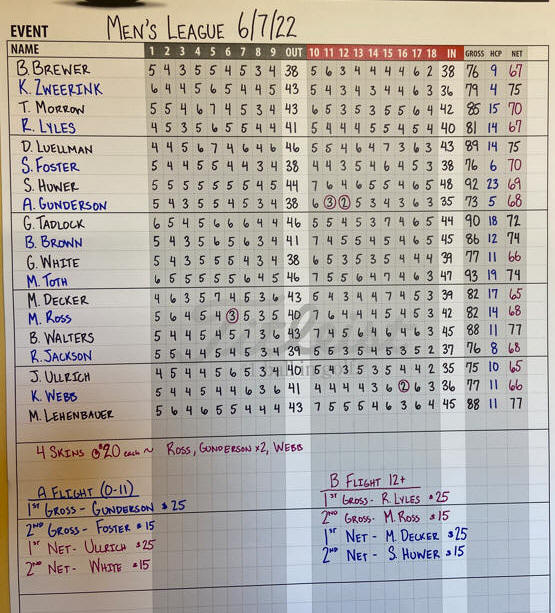 EVENT MEN'S LEAGUE 6/7/22
NAME 1 2 3 4 5 6 7 8 9 OUT 10 11 12 13 14 15 16 17 18 IN GROSS HCP NET
B. BREWER 5 4 3 5 5 4 5 3 4 38 5 6 3 4 4 4 4 6 2 38 76 9 67
K. ZWEERINK 6 4 4 5 6 5 4 4 5 43 5 4 3 4 3 4 4 6 3 36 79 4 75
T. MORROW 5 5 4 6 7 4 5 3 4 43 6 5 3 5 3 5 5 6 4 42 85 15 70
R. LYLES 4 5 3 5 6 5 5 4 4 41 5 4 4 4 5 5 4 5 4 40 81 14 67
D. LUELLMAN 4 4 5 6 7 4 6 4 6 46 5 5 4 6 4 7 3 6 3 43 89 14 75
S. FOSTER 5 4 4 5 5 4 4 3 4 38 4 4 3 5 4 6 4 5 3 38 76 6 70
S. HUWER 5 5 5 5 5 5 5 4 5 44 7 6 4 6 5 5 4 6 5 48 92 23 69
A. GUNDERSON 5 4 3 5 5 4 5 3 4 38 6 3 2 5 4 3 3 6 3 35 73 5 68
G. TADLOCK 6 5 4 5 6 6 6 4 4 46 5 5 4 5 3 7 4 6 5 44 90 18 72
B. BROWN 5 4 3 5 6 5 6 3 4 41 7 4 5 5 4 5 4 6 5 45 86 12 74
G. WHITE 5 4 3 5 5 5 4 3 4 38 6 5 3 5 3 5 4 4 4 39 77 11 66
M. TOTH 6 5 5 5 5 5 6 4 5 46 7 5 5 6 4 7 4 6 3 47 93 19 74
M. DECKER 4 6 3 5 7 4 5 3 6 43 5 4 3 4 4 7 4 5 3 39 82 17 65
M. ROSS 5 6 4 5 4 3 5 3 5 40 7 6 4 5 3 4 5 5 3 42 82 14 68
B. WALTERS 5 4 4 5 4 5 7 3 6 43 7 4 5 6 4 6 4 6 3 45 88 11 77
R. JACKSON 5 5 4 4 5 4 5 3 4 39 5 5 4 4 4 5 3 5 2 37 76 8 68
J. ULLRICH 4 5 4 4 5 6 5 3 4 40 5 4 3 5 3 5 4 4 2 35 75 10 65
K. WEBB 5 4 4 5 4 4 6 3 6 41 4 4 4 4 3 6 2 6 3 36 77 11 66
M. LEHENBAUER 5 6 4 6 5 5 4 4 4 43 7 5 5 5 4 6 3 6 4 45 88 11 77
4 SKINS @ $20 each ~ ROSS, GUNDERSON x2, WEBB
A FLIGHT (0-11)
1ST GROSS - GUNDERSON $25
2ND GROSS - FOSTER $15
1ST NET - ULLRICH $25
2ND NET - WHITE $15
B FLIGHT 12+
1ST GROSS - R. LYLES $25
2ND GROSS - M. ROSS $15
1ST NET - M. DECKER $25
2ND NET - S. HUWER $15